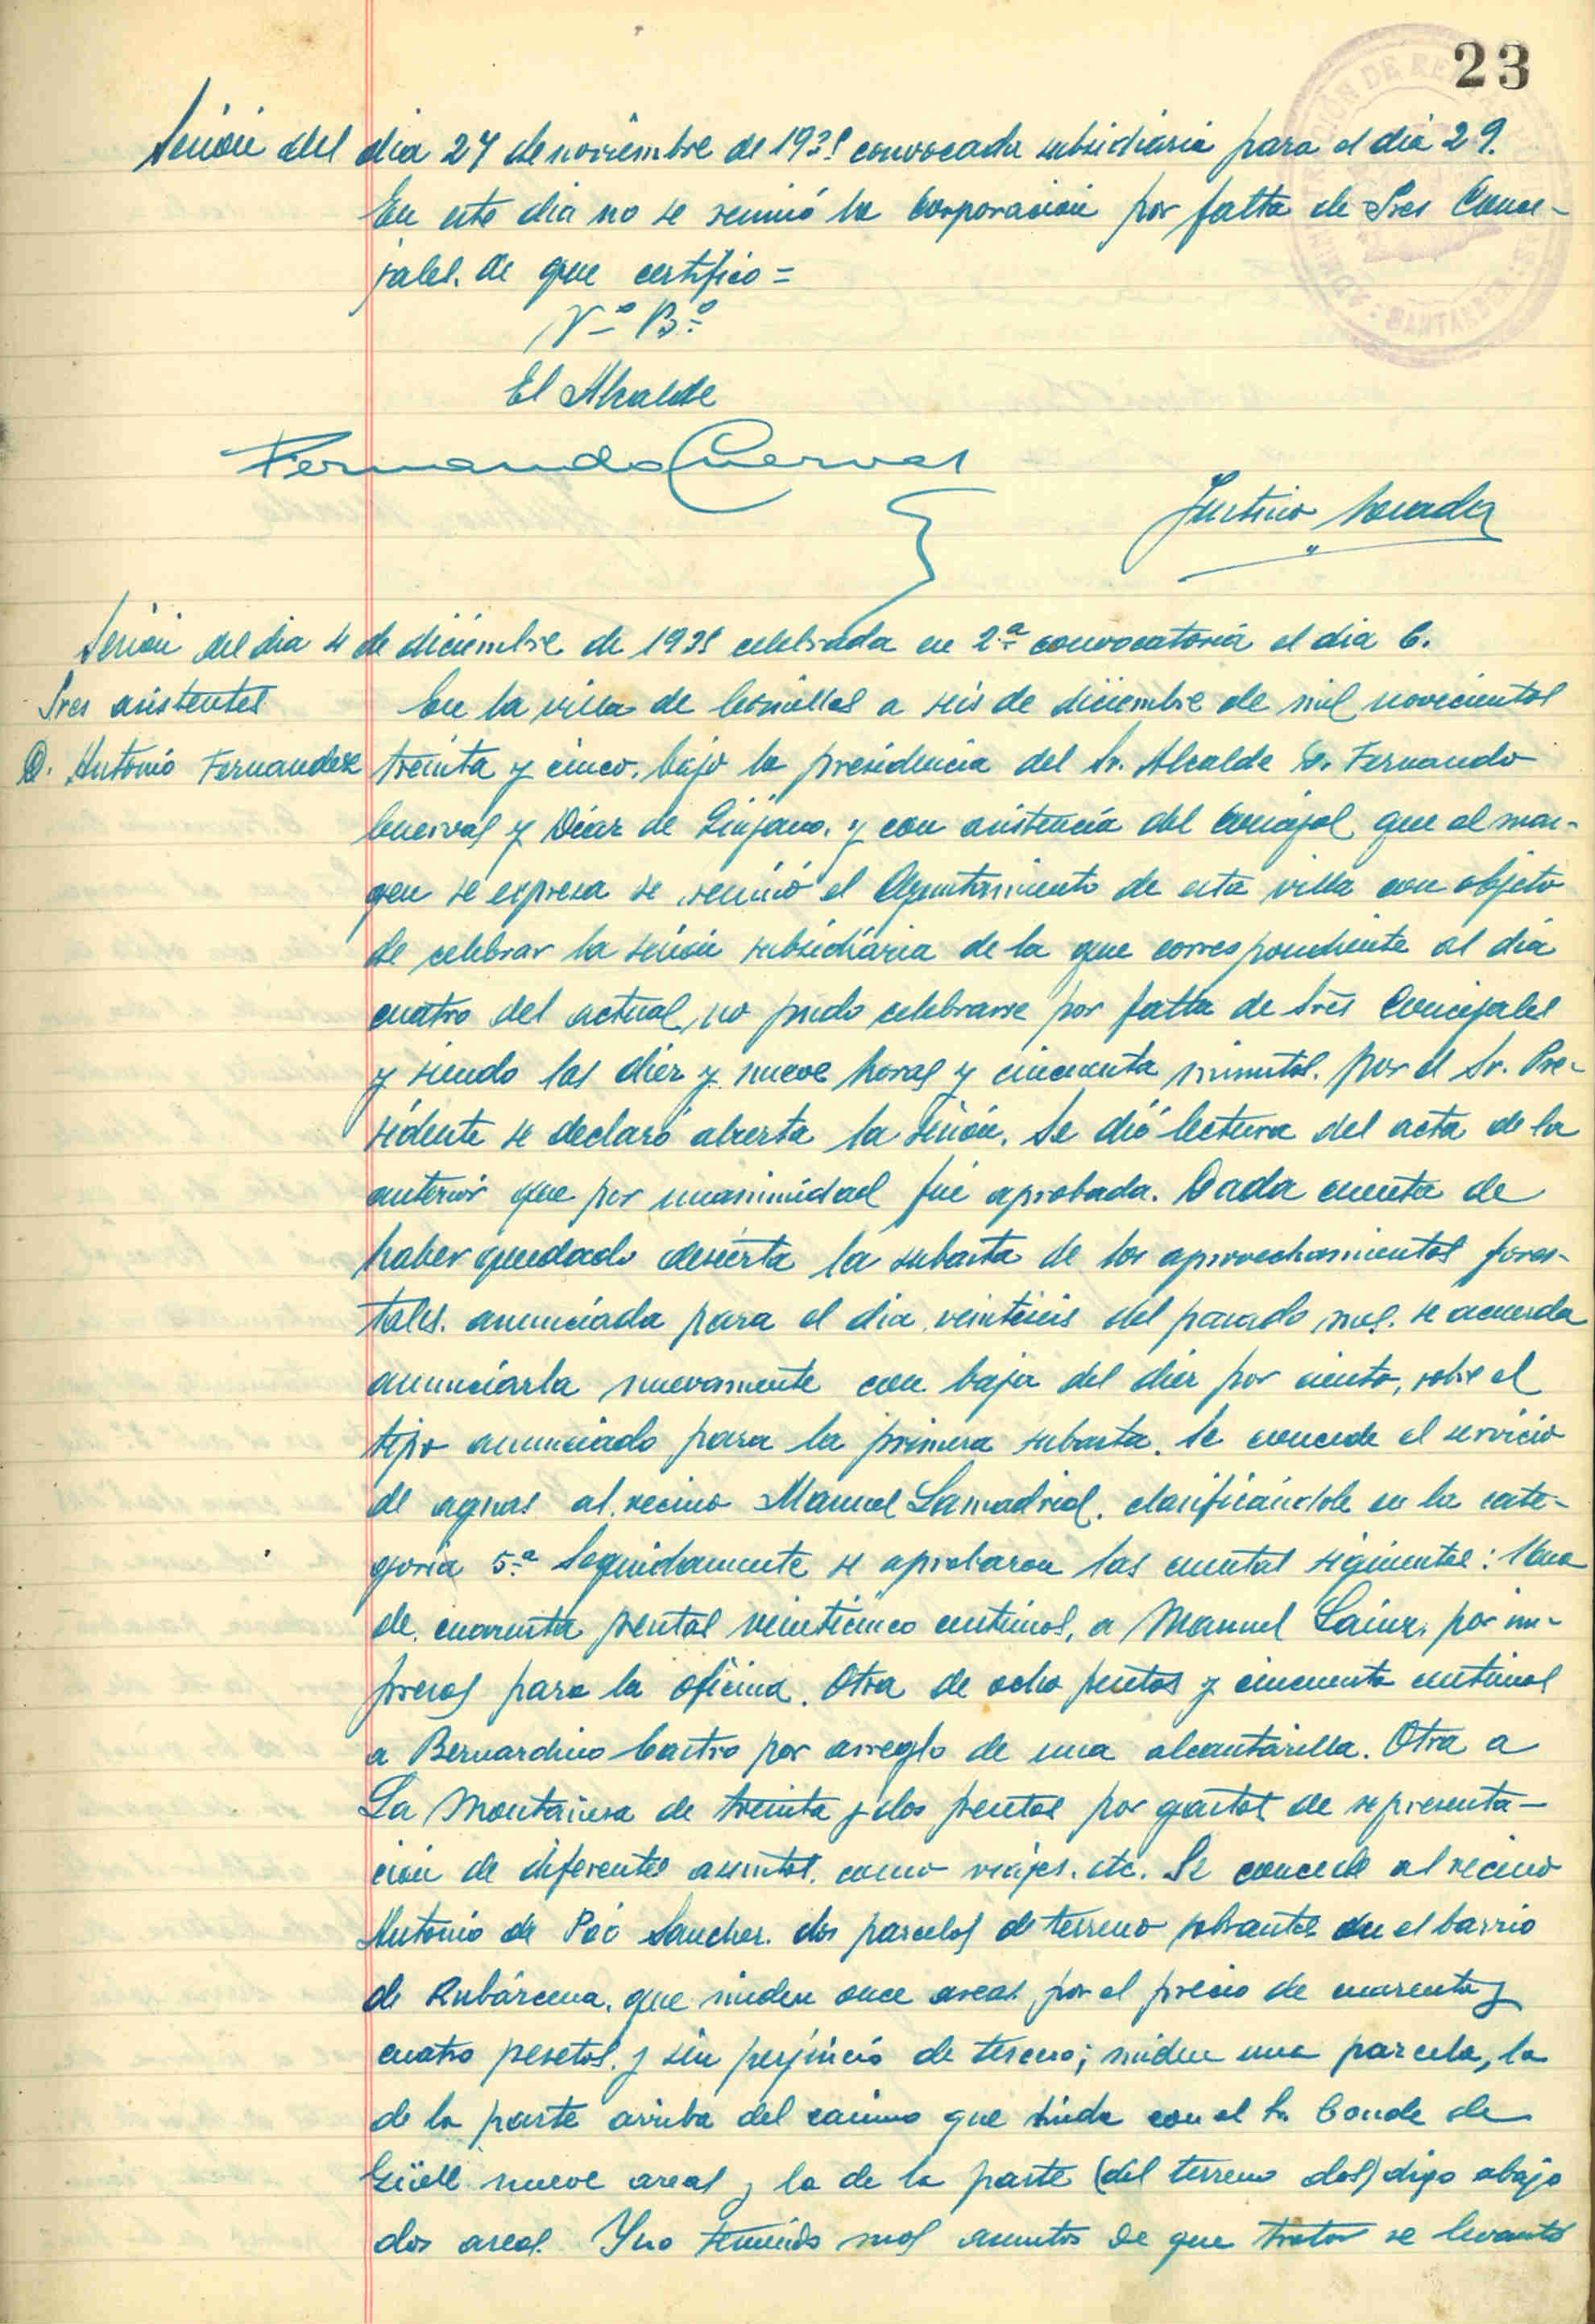 23
ADMINISTRACIÓN DE RENTAS
SANTANDER
Sesión del dia 27 de noviembre de 1935 convocada subsidiaria para el dia 29.
En este dia no se reunió la Corporación por falta de Sres Conce-
jales. de que certifico =
Vº Bº
El Alcalde
Fernando Cuervas
Justino
Sesión del dia 4 de diciembre de 1935 celebrada en 2ª convocatoria el dia 6.
Sres asistentes
D. Antonio Fernandez
En la villa de Comillas a seis de diciembre de mil novecientos
treinta y cinco, bajo la presidencia del Sr. Alcalde D. Fernando
Cuervas y Diaz de Quijano, y con asistencia del Concejal que al mar-
gen se expresa se reunió el Ayuntamiento de esta villa con objeto
de celebrar la sesión subsidiaria de la que correspondiente al dia
cuatro del actual, no pudo celebrarse por falta de Sres Concejales
y siendo las diez y nueve horas y cincuenta minutos. por el Sr. Pre-
sidente se declaró abierta la sesión. Se dió lectura del acta de la
anterior que por unanimidad fué aprobada. Dada cuenta de
haber quedado desierta la subasta de los aprovechamientos fores-
tales. anunciada para el dia veintiseis del pasado mes. se acuerda
anunciarla nuevamente con baja del diez por ciento, sobre el
tipo anunciado para la primera subasta. Se concede el servicio
de aguas al vecino Manuel Lamadrid. clasificándole en la cate-
goria 5ª Seguidamente se aprobaron las cuentas siguientes: Una
de cuarenta pesetas veinticinco centimos, a Manuel Lainz, por im-
presos para la oficina. Otra de ocho pesetas y cincuenta centimos
a Bernardino Castro por arreglo de una alcantarilla. Otra a
La Montañesa de treinta y dos pesetas por gastos de representa-
ción de diferentes asuntos. como viajes. etc. Se concede al vecino
Antonio de Poó Sanchez. dos parcelas de terreno sobrantes en el barrio
de Rubárcena, que miden once areas por el precio de cuarenta y
cuatro pesetas. y sin perjuicio de tercero; miden una parcela, la
de la parte arriba del camino que linda con el Sr. Conde de
Güell nueve areas y la de la parte (del terreno dos) digo abajo
dos areas. Y no teniendo mas asuntos de que tratar se levantó